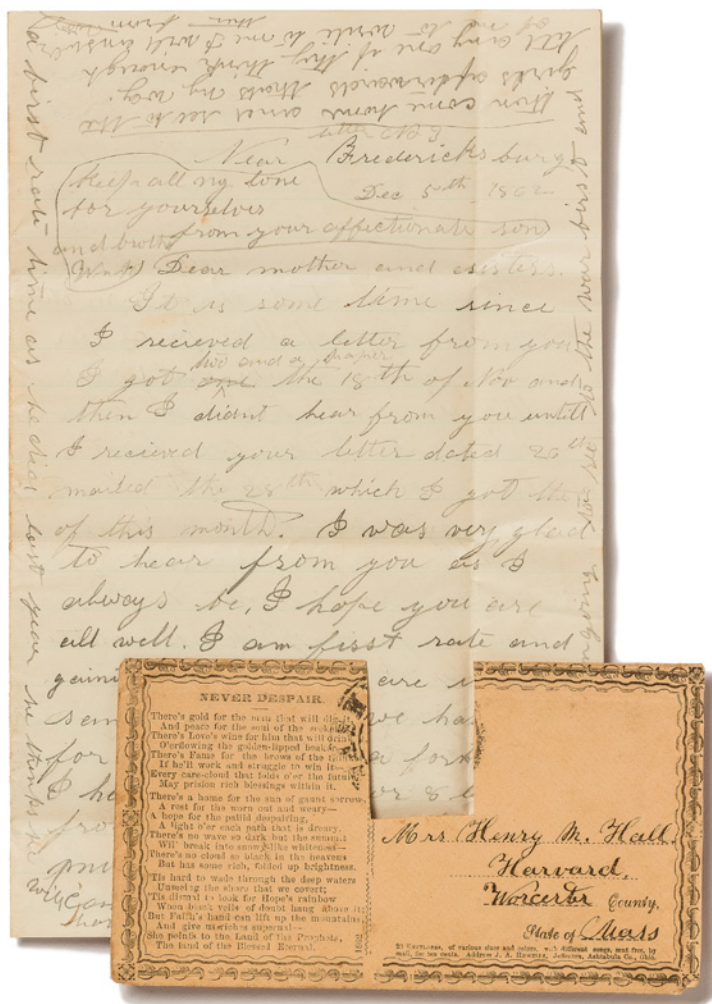 then come home and see to the
girls afterwards thats my way.
tell any one if they think enough
of me to write to me I will answer
then from
letter No 3
Near Fredericksburg
Dec 5th 1862
Keep all my love
for yourselves
from your affectionate son
and brother
Dear mother and sisters.
It is some time since
I recieved a letter from you
two and a paper
I got one the 18th of Nov and
then I didnt hear from you untill
I recieved your letter dated 20th
mailed the 28th which I got the
of this month. I was very glad
to hear from you as I
always be, I hope you are
all well. I am first rate and
gaini are
sen we ha
for a for
I ha or &
fro
a first rate time as he did last year he thinks
will
am going to see to the war first and
NEVER DESPAIR.
There's gold for the man that will dig it,
And peace for the soul of the
There's Love's wine for him that will drink
O'erflowing the golden-lipped beaker
There's Fame for the brows of the
If he'll work and struggle to win it—
Every care-cloud that folds o'er the future
May prison rich blessings within it.
There's a home for the son of gaunt sorrow,
A rest for the worn out and weary—
A hope for the pallid despairing,
A light o'er each path that is dreary.
There's no wave so dark but the summit
Will break into snowy-like whiteness—
There's no cloud so black in the heavens
But has some rich, folded up brightness.
'Tis hard to wade through the deep waters
Unseeing the shore that we covert;
'Tis dismal to look for Hope's rainbow
When black veils of doubt hang above it;
But Faith's hand can lift up the mountains,
And give us riches supernal—
She points to the Land of the Prophets,
The land of the Blessed Eternal.
Mrs Henry M. Hall.
Harvard,
Worcester County,
State of Mass
25 Envelopes, of various sizes and colors, with different songs, sent free, by
mail, for ten cents. Address J. A. Howells, Jefferson, Ashtabula Co., Ohio.